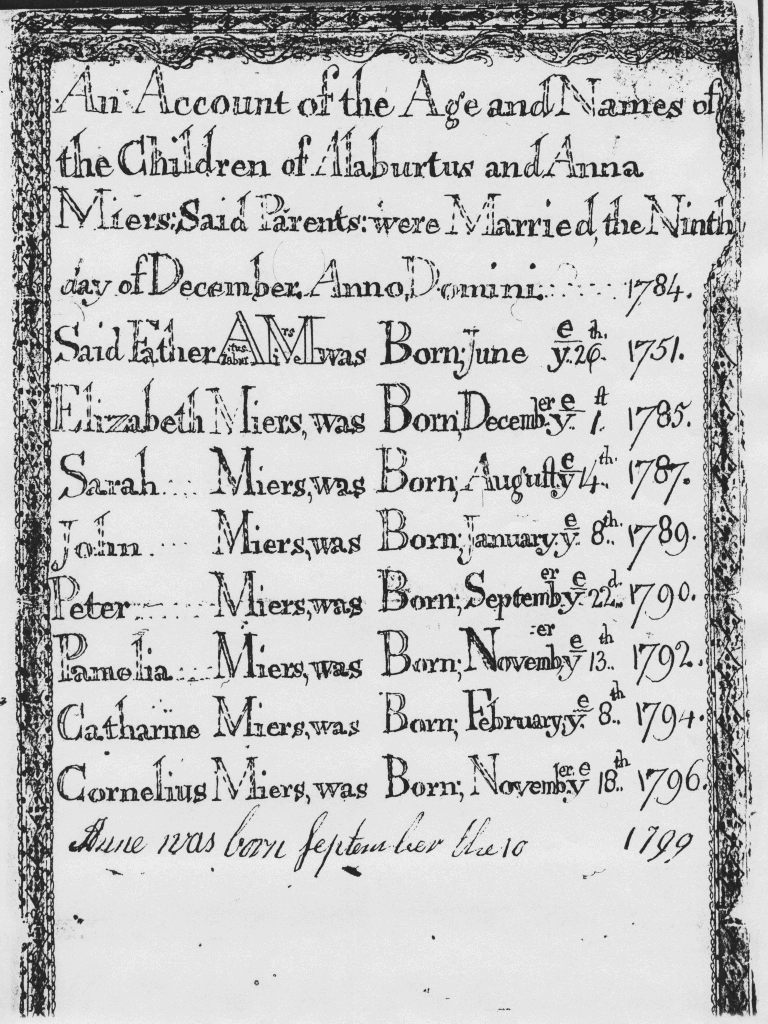 An Account of the Age and Names of
the Children of Alaburtus and Anna
Miers: Said Parents: were Married, the Ninth
day of December. Anno, Domini. 1784.
Said Father, A M was Born; June y.e 26.th 1751.
Elizabeth Miers, was Born; Decemb.er y.e 1.st 1785.
Sarah Miers, was Born; August y.e 14.th 1787.
John Miers, was Born; January, y.e 8.th 1789.
Peter Miers, was Born; Septemb.er y.e 22.d 1790.
Pamelia Miers, was Born; Novemb.er y.e 13.th 1792.
Catharine Miers, was Born; February, y.e 8.th 1794.
Cornelius Miers, was Born; Novemb.er y.e 18.th 1796.
was born September the 10 1799